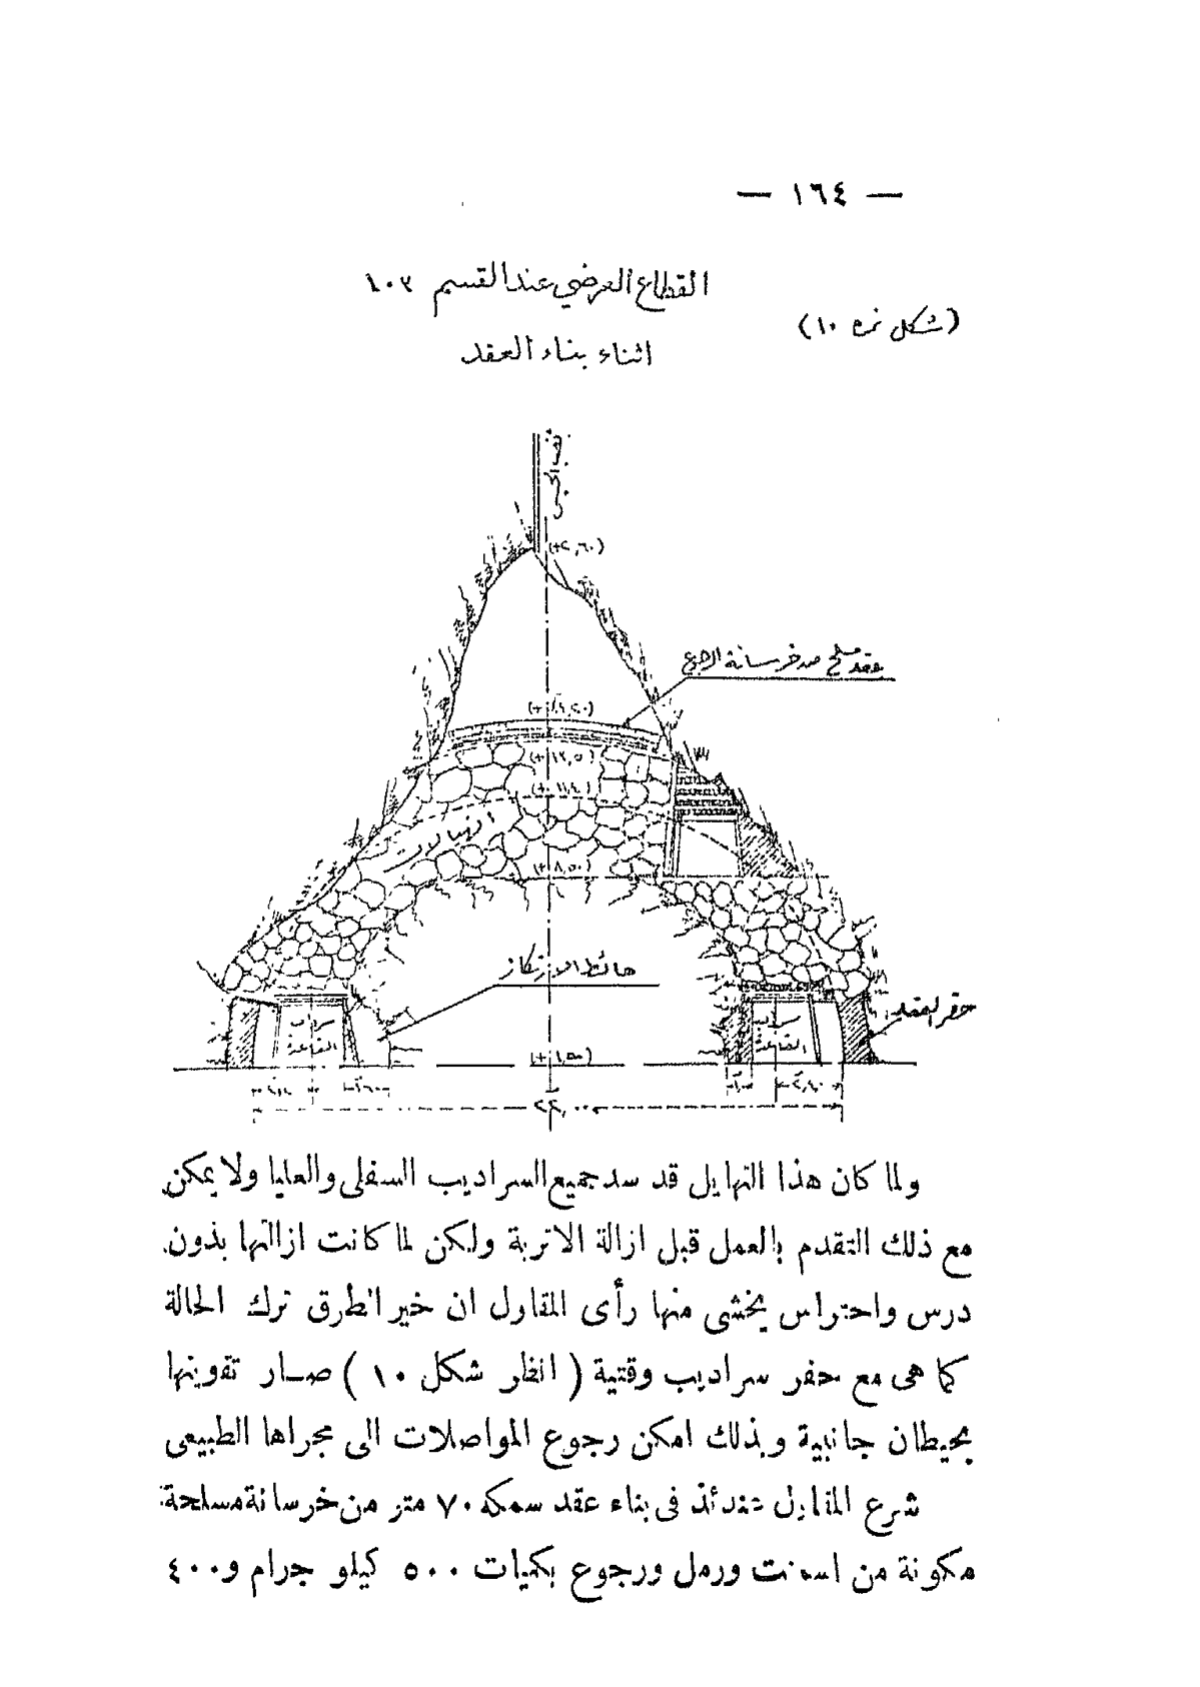 — ١٦٤ —
القطاع العرضي عند القسم ١٠٣
(شكل نمرة ١٠)
اثناء بناء العقد
(+٢,٦٠)
عقد مسلح من خرسانة الرجوع
(+١٢,٥٠)
(+٨,٥٠)
حائط الارتكاز
حفر العقد
سرداب
القاعدة
سرداب
القاعدة
(+١,٥٠)
٢٢,٠٠
ولما كان هذا التهايل قد سد جميع السراديب السفلى والعليا ولا يمكن
مع ذلك التقدم بالعمل قبل ازالة الاتربة ولكن لما كانت ازالتها بذون
درس واحتراس يخشى منها رأى المقاول ان خير الطرق ترك الحالة
كما هى مع حفر سراديب وقتية ( انظر شكل ١٠ ) صار تقويتها
بحيطان جانبية وبذلك امكن رجوع المواصلات الى مجراها الطبيعى
شرع المقاول عندئذ فى بناء عقد سمكه ٧٠ متر من خرسانة مسلحة
مكونة من اسمنت ورمل ورجوع بكميات ٥٠٠ كيلو جرام و ٤٠٠